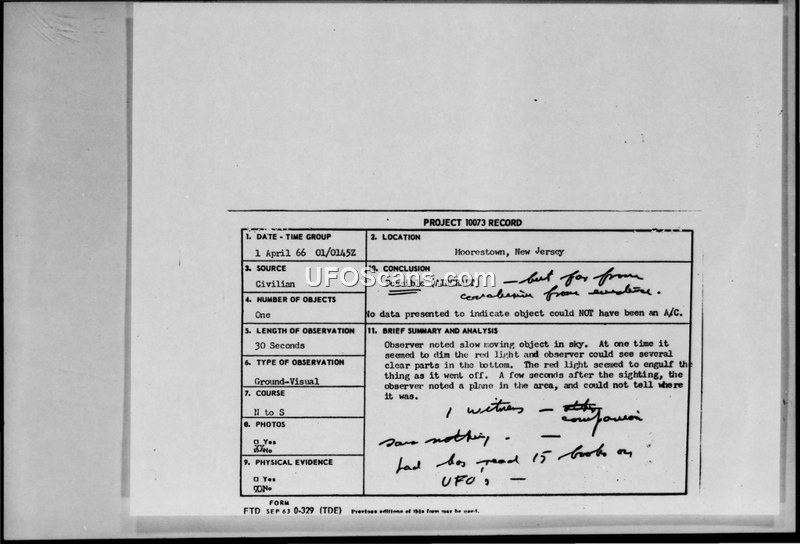 PROJECT 10073 RECORD
1. DATE - TIME GROUP
1 April 66 01/0145Z
2. LOCATION
Moorestown, New Jersey
3. SOURCE
Civilian
10. CONCLUSION
Possible (AIRCRAFT) — but far from
conclusive from evidence.
No data presented to indicate object could NOT have been an A/C.
4. NUMBER OF OBJECTS
One
5. LENGTH OF OBSERVATION
30 Seconds
11. BRIEF SUMMARY AND ANALYSIS
Observer noted slow moving object in sky. At one time it
seemed to dim the red light and observer could see several
clear parts in the bottom. The red light seemed to engulf the
thing as it went off. A few seconds after the sighting, the
observer noted a plane in the area, and could not tell where
it was.
1 witness —
companion
saw nothing. —
Lad has read 15 books on
UFOs —
6. TYPE OF OBSERVATION
Ground-Visual
7. COURSE
N to S
8. PHOTOS
Yes
No
9. PHYSICAL EVIDENCE
Yes
No
FORM
FTD SEP 63 0-329 (TDE) Previous editions of this form may be used.
UFOScans.com